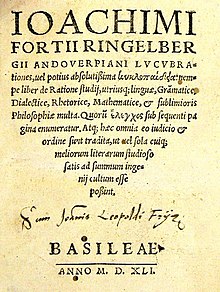 IOACHIMI
FORTII RINGELBER
GII ANDOVERPIANI LVCVBRA-
tiones, uel potius absolutissima κυκλοπαιδεία: nempe
liber de Ratione studij, utriusq; linguæ, Grãmatice,
Dialectice, Rhetorice, Mathematice, & sublimioris
Philosophiæ multa. Quorũ ἔλεγχος sub sequenti pa
gina enumeratur. Atq; hæc omnia eo iudicio &
ordine sunt tradita, ut uel sola cuiq;
meliorum literarum studioso
satis ad summum inge-
nij cultum esse
possint.
Sum Joannis Leopoldi
BASILEAE
ANNO M. D. XLI.